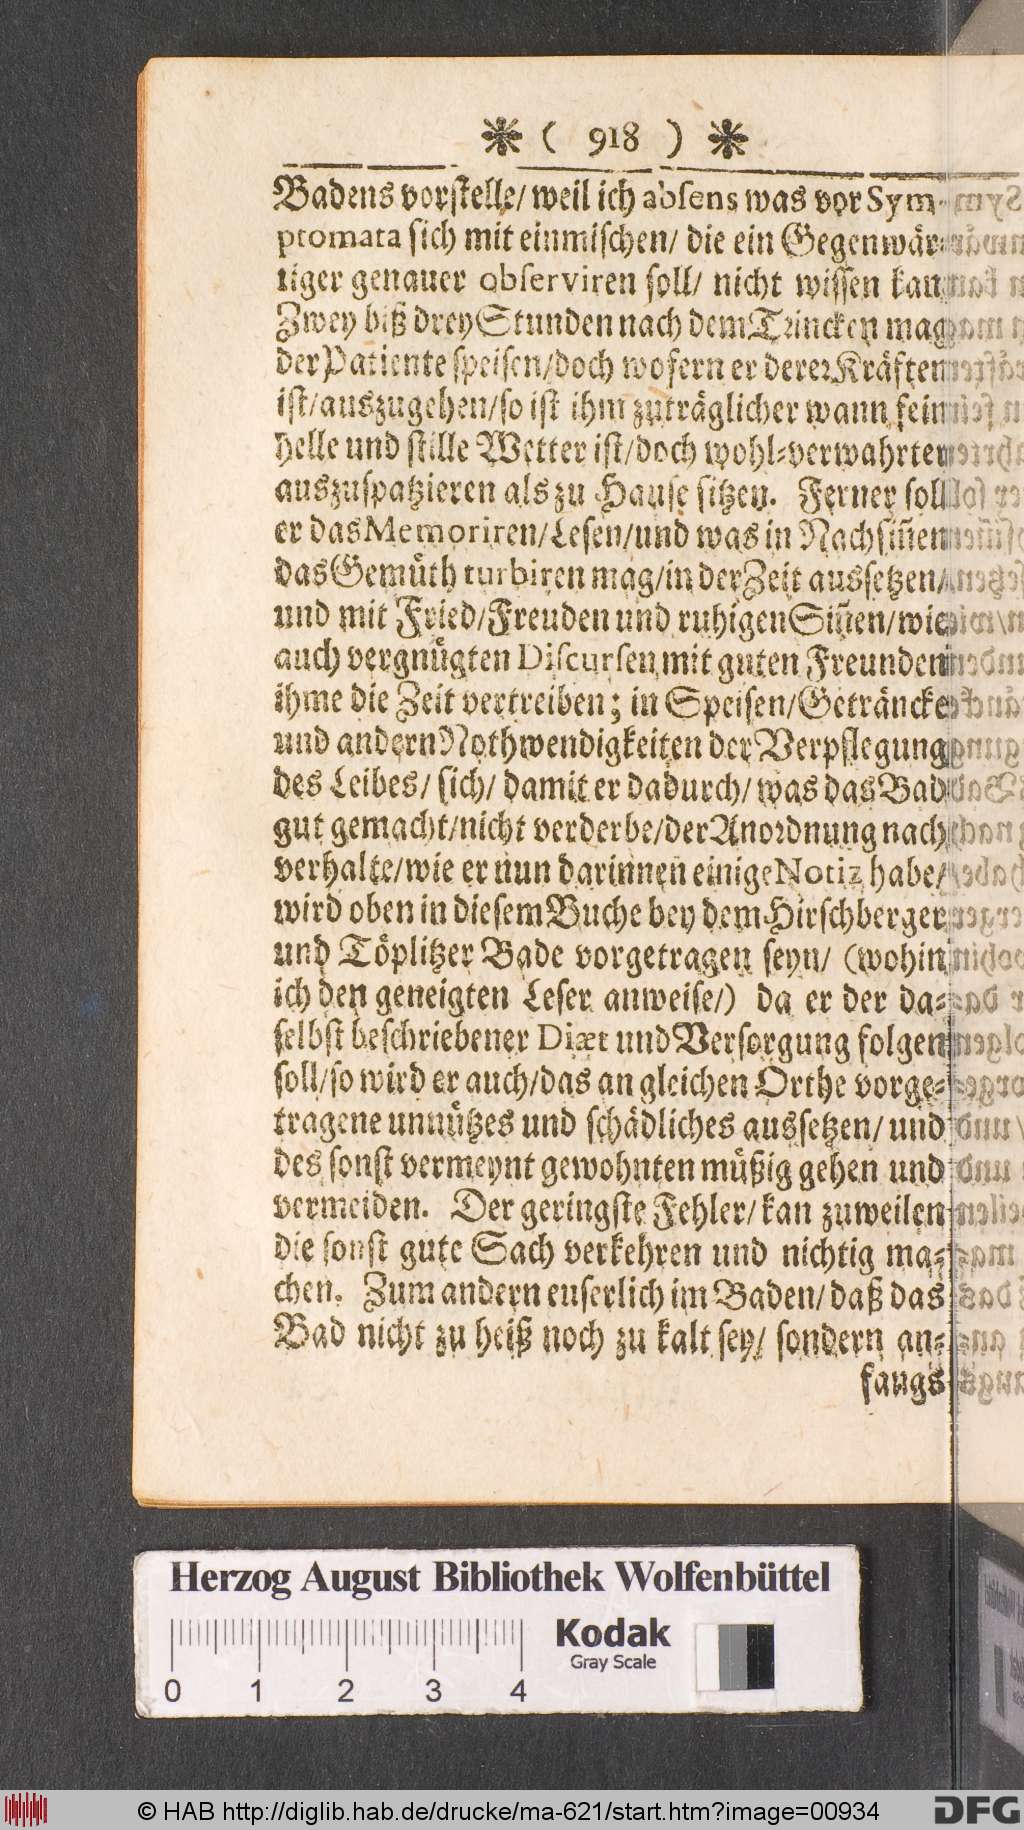 * ( 918 ) *
Badens vorstelle/ weil ich absens was vor Sym-
ptomata sich mit einmischen/ die ein Gegenwär-
tiger genauer observiren soll/ nicht wissen kan
Zwey biß drey Stunden nach dem Trincken mag
der Patiente speisen/doch wofern er derer Kräften
ist/auszugehen/so ist ihm zuträglicher wann fein
helle und stille Wetter ist/doch wohl-verwahrter
auszuspatzieren als zu Hause sitzen. Ferner soll
er das Memoriren/Lesen/und was in Nachsiñen
das Gemüth turbiren mag/in der Zeit aussetzen/
und mit Fried/Freuden und ruhigen Siñen/wie
auch vergnügten Discursen mit guten Freunden
ihme die Zeit vertreiben; in Speisen/Getråncke
und andern Nothwendigkeiten der Verpflegung
des Leibes/ sich/ damit er dadurch/ was das Bad
gut gemacht/nicht verderbe/der Anordnung nach
verhalte/wie er nun darinnen einige Notiz habe/
wird oben in diesem Buche bey dem Hirschberger
und Töplitzer Bade vorgetragen seyn/ (wohin
ich den geneigten Leser anweise/) da er der da-
selbst beschriebener Diæt und Versorgung folgen
soll/so wird er auch/das an gleichen Orthe vorge-
tragene unnützes und schädliches aussetzen/ und
des sonst vermeynt gewohnten müßig gehen und
vermeiden. Der geringste Fehler/ kan zuweilen
die sonst gute Sach verkehren und nichtig ma-
chen. Zum andern euserlich im Baden/ daß das
Bad nicht zu heiß noch zu kalt sey/ sondern an-
fangs
Herzog August Bibliothek Wolfenbüttel
Kodak
Gray Scale
0 1 2 3 4
© HAB http://diglib.hab.de/drucke/ma-621/start.htm?image=00934
DFG